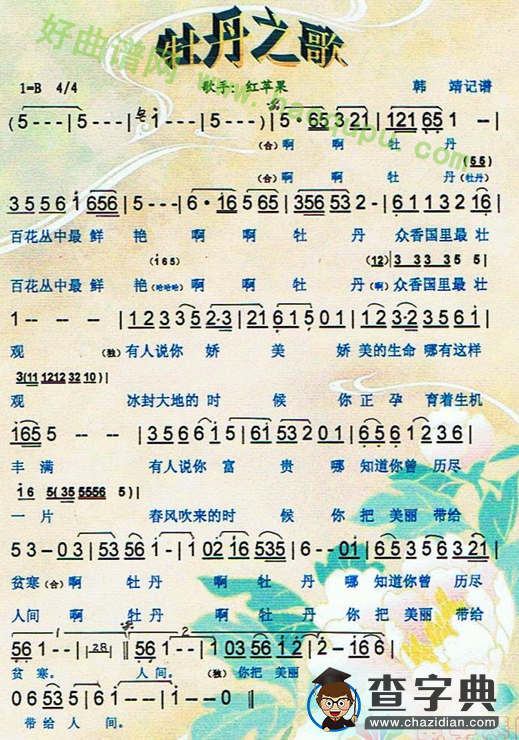 牡丹之歌
好曲谱网
1=B 4/4 歌手：红苹果 韩 靖记谱
(5 - - - | 5 - - - | 5 - - - | 5 - - -) | 5· 65 3 21 | 121 65 1 - - |
(合) 啊 啊 牡 丹
(55)
(合) 啊 啊 牡 丹 (牡丹)
3 5 5 6 i 656 | 5 - - - | 6· i6 5 6 5 | 356 53 2 - | 2 3 3 2 3 2 i6 |
百花丛中最 鲜 艳 啊 啊 牡 丹 众香国里最 壮
(i65) (12) 3 33 35 5
百花丛中最 鲜 艳 (哈哈哈) 啊 啊 牡 丹 (啊) 众香国里最 壮
1 - - - | 1 2 3 3 52·3 | 21 6 1 5 0 1 | 1 2 3·2 3 5 6 |
观 (独) 有人说你 娇 美 娇 美的生命 哪有这样
3(11 1212 32 10) |
观 冰封大地的 时 候 你 正 孕 育着生机
i65 5 - - | 3 5 6 6 i 5 | 61 53 2 0 1 | 6 5 6 1 2 3 6 |
丰 满 有人说你 富 贵 哪 知道你曾 历尽
i 6 5(35 5556 5) |
一 片 春风吹来的时 候 你 把 美丽 带给
5 3 - 0 3 | 53 56 1 - | 1 02 i6 535 | 6 - - 0i | 6 5 3 5 6 3 21 |
贫寒 (合) 啊 牡 丹 啊 牡 丹 哪 知道你曾 历尽
人间 啊 牡 丹 啊 牡 丹 你 把 美丽 带给
56 1 - - | 28 | 56 1 - - | 1 03 56 i2 | 2 - i6 6 |
贫 寒。 人 间。 (独) 你把 美丽
0 6 5 53 5 | 6 1 - - | 1 - - 0 ‖
带 给 人 间。
查字典
www.chazidian.com